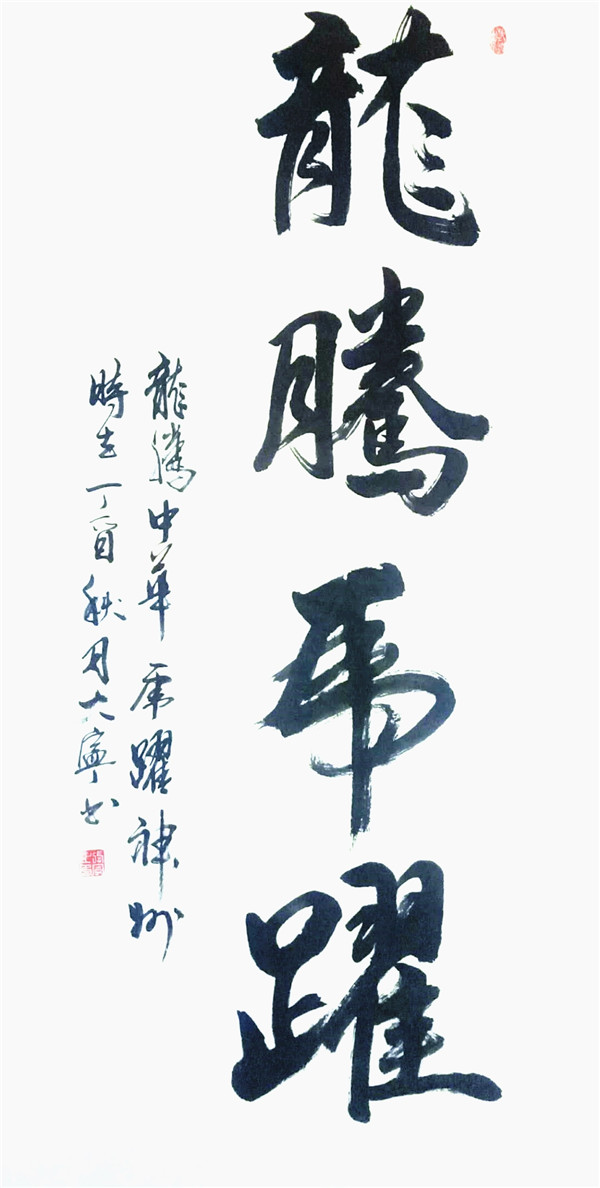 龍騰虎躍
龍騰中華虎躍神州
時在丁酉秋月大寧书